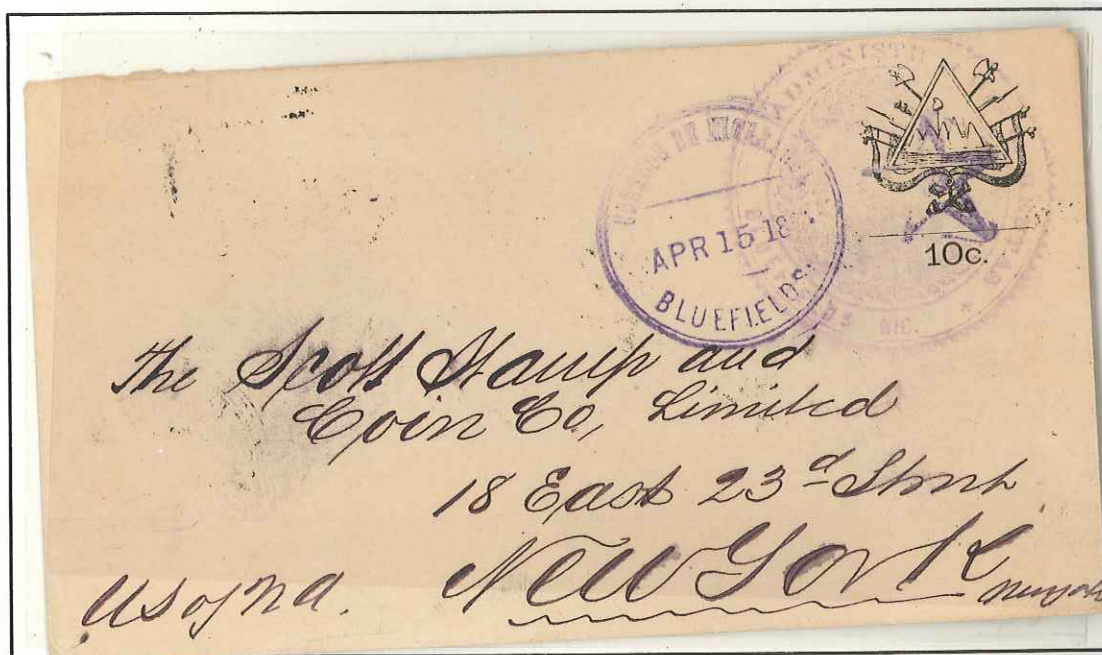 CORREOS DE NICARAGUA
APR 15 18
BLUEFIELDS
ADMINIST
NIC.
10c.
The Scott Stamp and
Coin Co, Limited
18 East 23d Street
New York
US of NA.